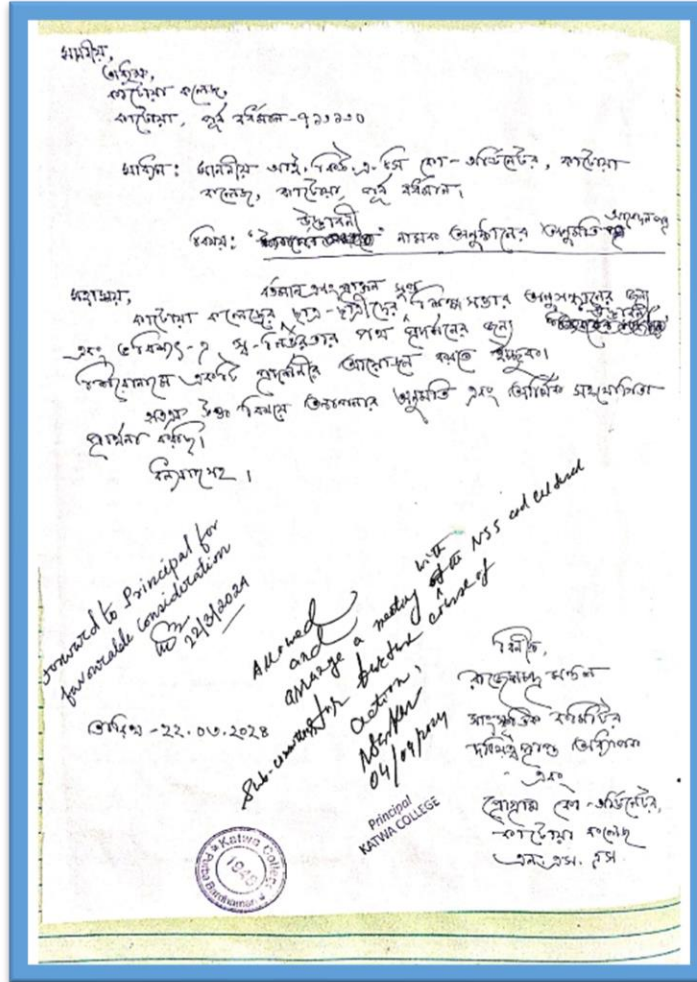 মাননীয়,
অধ্যক্ষ,
কাটোয়া কলেজ,
কাটোয়া, পূর্ব বর্ধমান-৭১৩১৩০
মাননীয় আই. কিউ. এ. সি কো-অর্ডিনেটর, কাটোয়া
কলেজ, কাটোয়া, পূর্ব বর্ধমান।
উদ্ভাবনী
বিষয়: " " নামক অনুষ্ঠানের অনুমতি
মহাশয়,
বর্তমান এবং প্রাক্তন সুপ্ত
কাটোয়া কলেজের ছাত্র-ছাত্রীদের শিল্প সত্তার অনুসন্ধানের জন্য
এবং ভবিষ্যৎ-এ স্ব-নির্ভরতার পথ প্রদর্শনের জন্য উদ্ভাবনী
শিরোনামে একটি প্রদর্শনীর আয়োজন করতে ইচ্ছুক।
অতএব উক্ত বিষয়ে আপনার অনুমতি এবং আর্থিক সহযোগিতা
প্রার্থনা করছি।
ধন্যবাদসহ।
Forward to Principal for
favourable consideration
22/3/2024
Allowed
and
arrange a meeting with the NSS and cultural
Sub-committee for further course of
action,
04/04/2024
Principal
KATWA COLLEGE
তারিখ -২২.০৩.২০২৪
বিনীত,
সাংস্কৃতিক কমিটির
দায়িত্বপ্রাপ্ত অধ্যাপক
এবং
প্রোগ্রাম কো-অর্ডিনেটর,
কাটোয়া কলেজ
এন. এস. এস.
Katwa College
1948
Purba Bardhaman